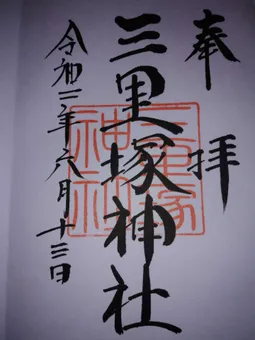 奉拝
三里塚神社
三里塚
神社
令和三年六月十三日